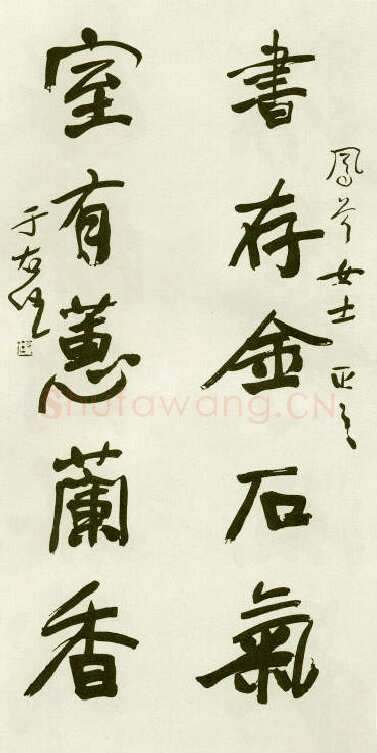 鳳岑女士正之
書存金石氣
室有蕙蘭香
于右任
Shufawang.CN